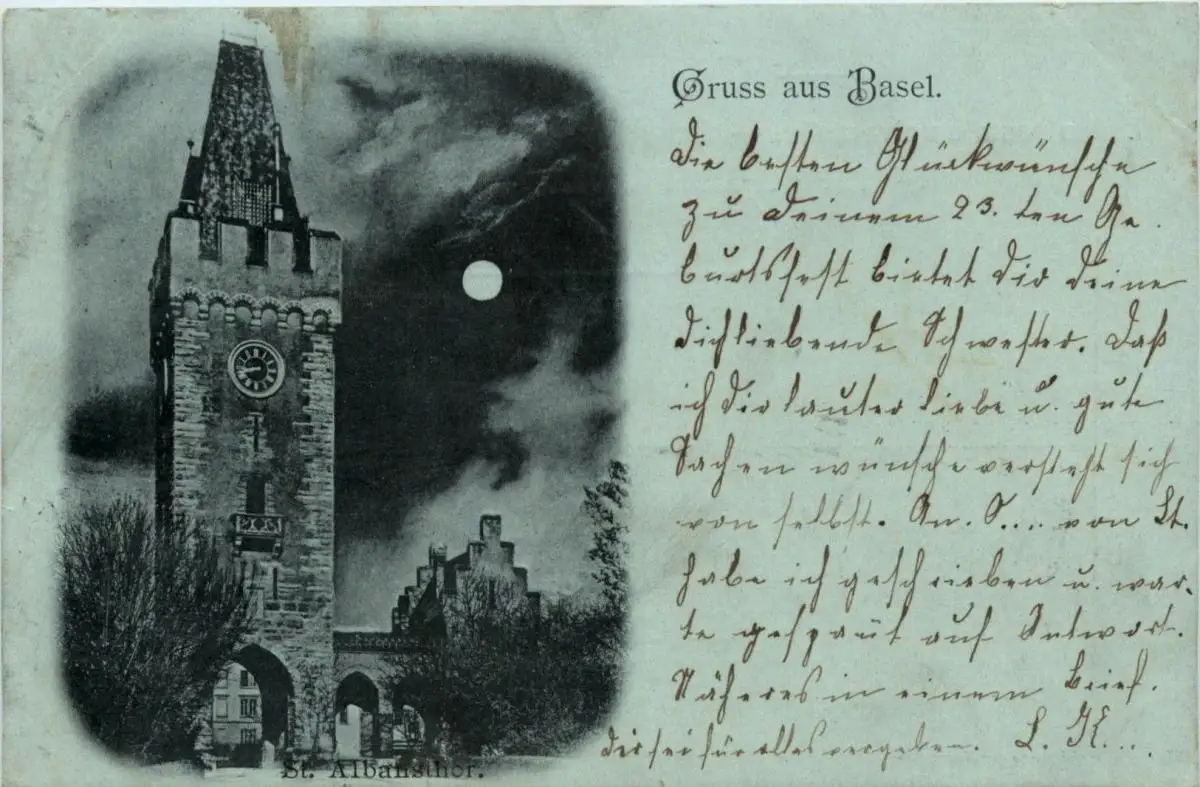 Gruss aus Basel.
Die besten Glückwünsche
zu Deinem 23. ten Ge-
burtsfest bietet Dir Deine
Dichliebende Schwester. Daß
ich Dir lauter liebe u. gute
Sachen wünsche versteht sich
von selbst. An. S.... von St.
habe ich geschrieben u. war-
te gespañt auf Antwort.
Näheres in einem Brief.
Dir sei für alles vergeben. L.
St. Albansthor.